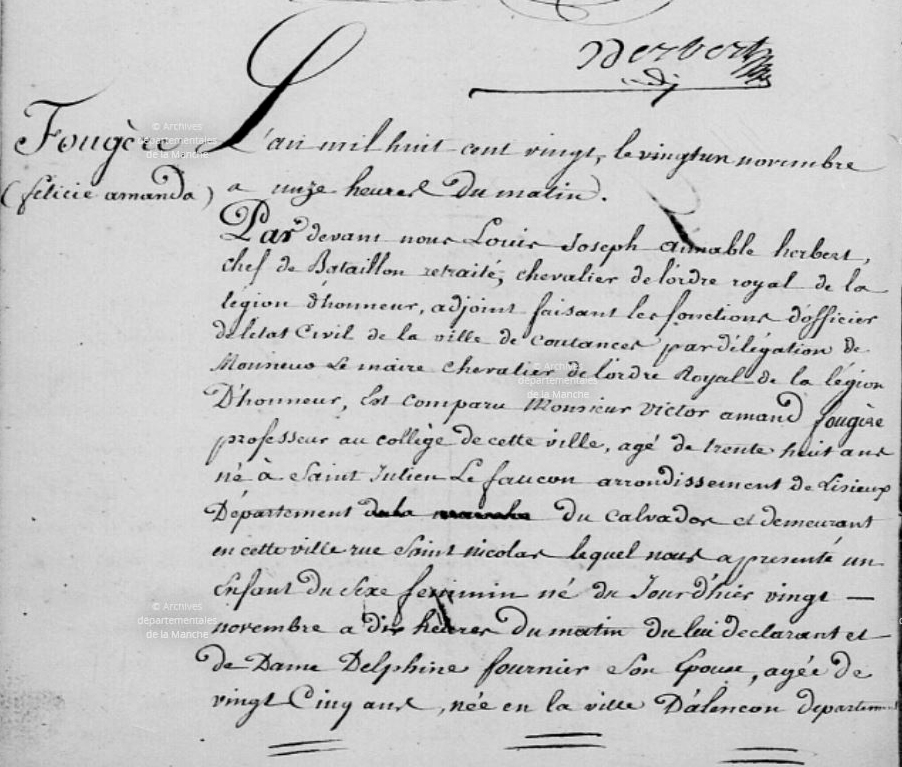 Herbert
adj
Fougère
(félicie amanda)
L'an mil huit cent vingt, le vingt un novembre
a onze heures Du matin.
Par devant nous Louis Joseph aimable herbert,
chef de Bataillon retraité, chevalier de l'ordre royal de la
legion d'honneur, adjoint faisant les fonctions d'officier
de letat Civil de la ville de Coutances par délégation de
Monsieur Le maire chevalier de l'ordre Royal de la légion
D'honneur, Est comparu Monsieur Victor amand fougère
professeur au collège de cette ville, agé de trente huit ans
né à Saint Julien Le faucon arrondissement de Lisieux
Département de la manche du Calvados et demeurant
en cette ville rue Saint nicolas lequel nous a presenté un
Enfant du Sexe feminin né du Jour d'hier vingt —
novembre a dix heures Du matin du lui declarant et
de Dame Delphine fournier Son Epouse, agée de
vingt Cinq ans, née en la ville D'alencon departement
© Archives
départementales
de la Manche
© Archives
départementales
de la Manche
© Archives
départementales
de la Manche